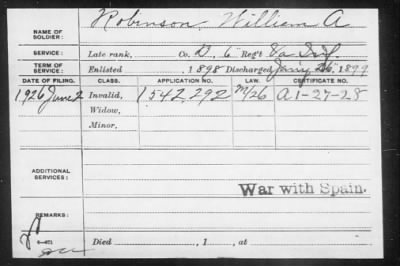 NAME OF SOLDIER: Robinson, William A
SERVICE: Late rank, Co. D, 6" Reg't Va Inf.
TERM OF SERVICE: Enlisted , 1898 Discharged Jan'y 26", 1899
DATE OF FILING. CLASS. APPLICATION NO. LAW. CERTIFICATE NO.
1926 June 2 Invalid, 1542,292 m/26 A 1-27-28
Widow,
Minor,
ADDITIONAL SERVICES:
War with Spain.
REMARKS:
Died , 1 , at